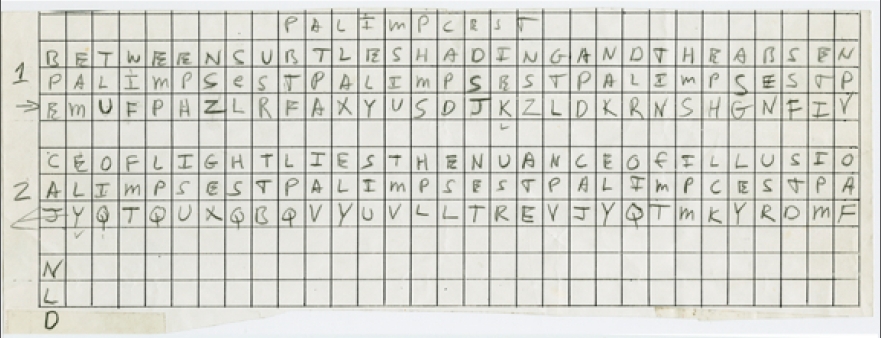 P A L I m P C E S T
B E T W E E N S U B T L E S H A D I N G A N D T H E A B S E N
1 P A L I m P S e S T P A L I m P S E S T P A L I m P S E S T P
E m U F P H Z L R F A X Y U S D J K Z L D K R N S H G N F I V
C E O F L I G H T L I E S T H E N U A N C E O F I L L U S I O
2 A L I m P S E S T P A L I m P S E S T P A L I m P C E S T P A
J Y Q T Q U X Q B Q V Y U V L L T R E V J Y Q T m K Y R D m F
N
L
D